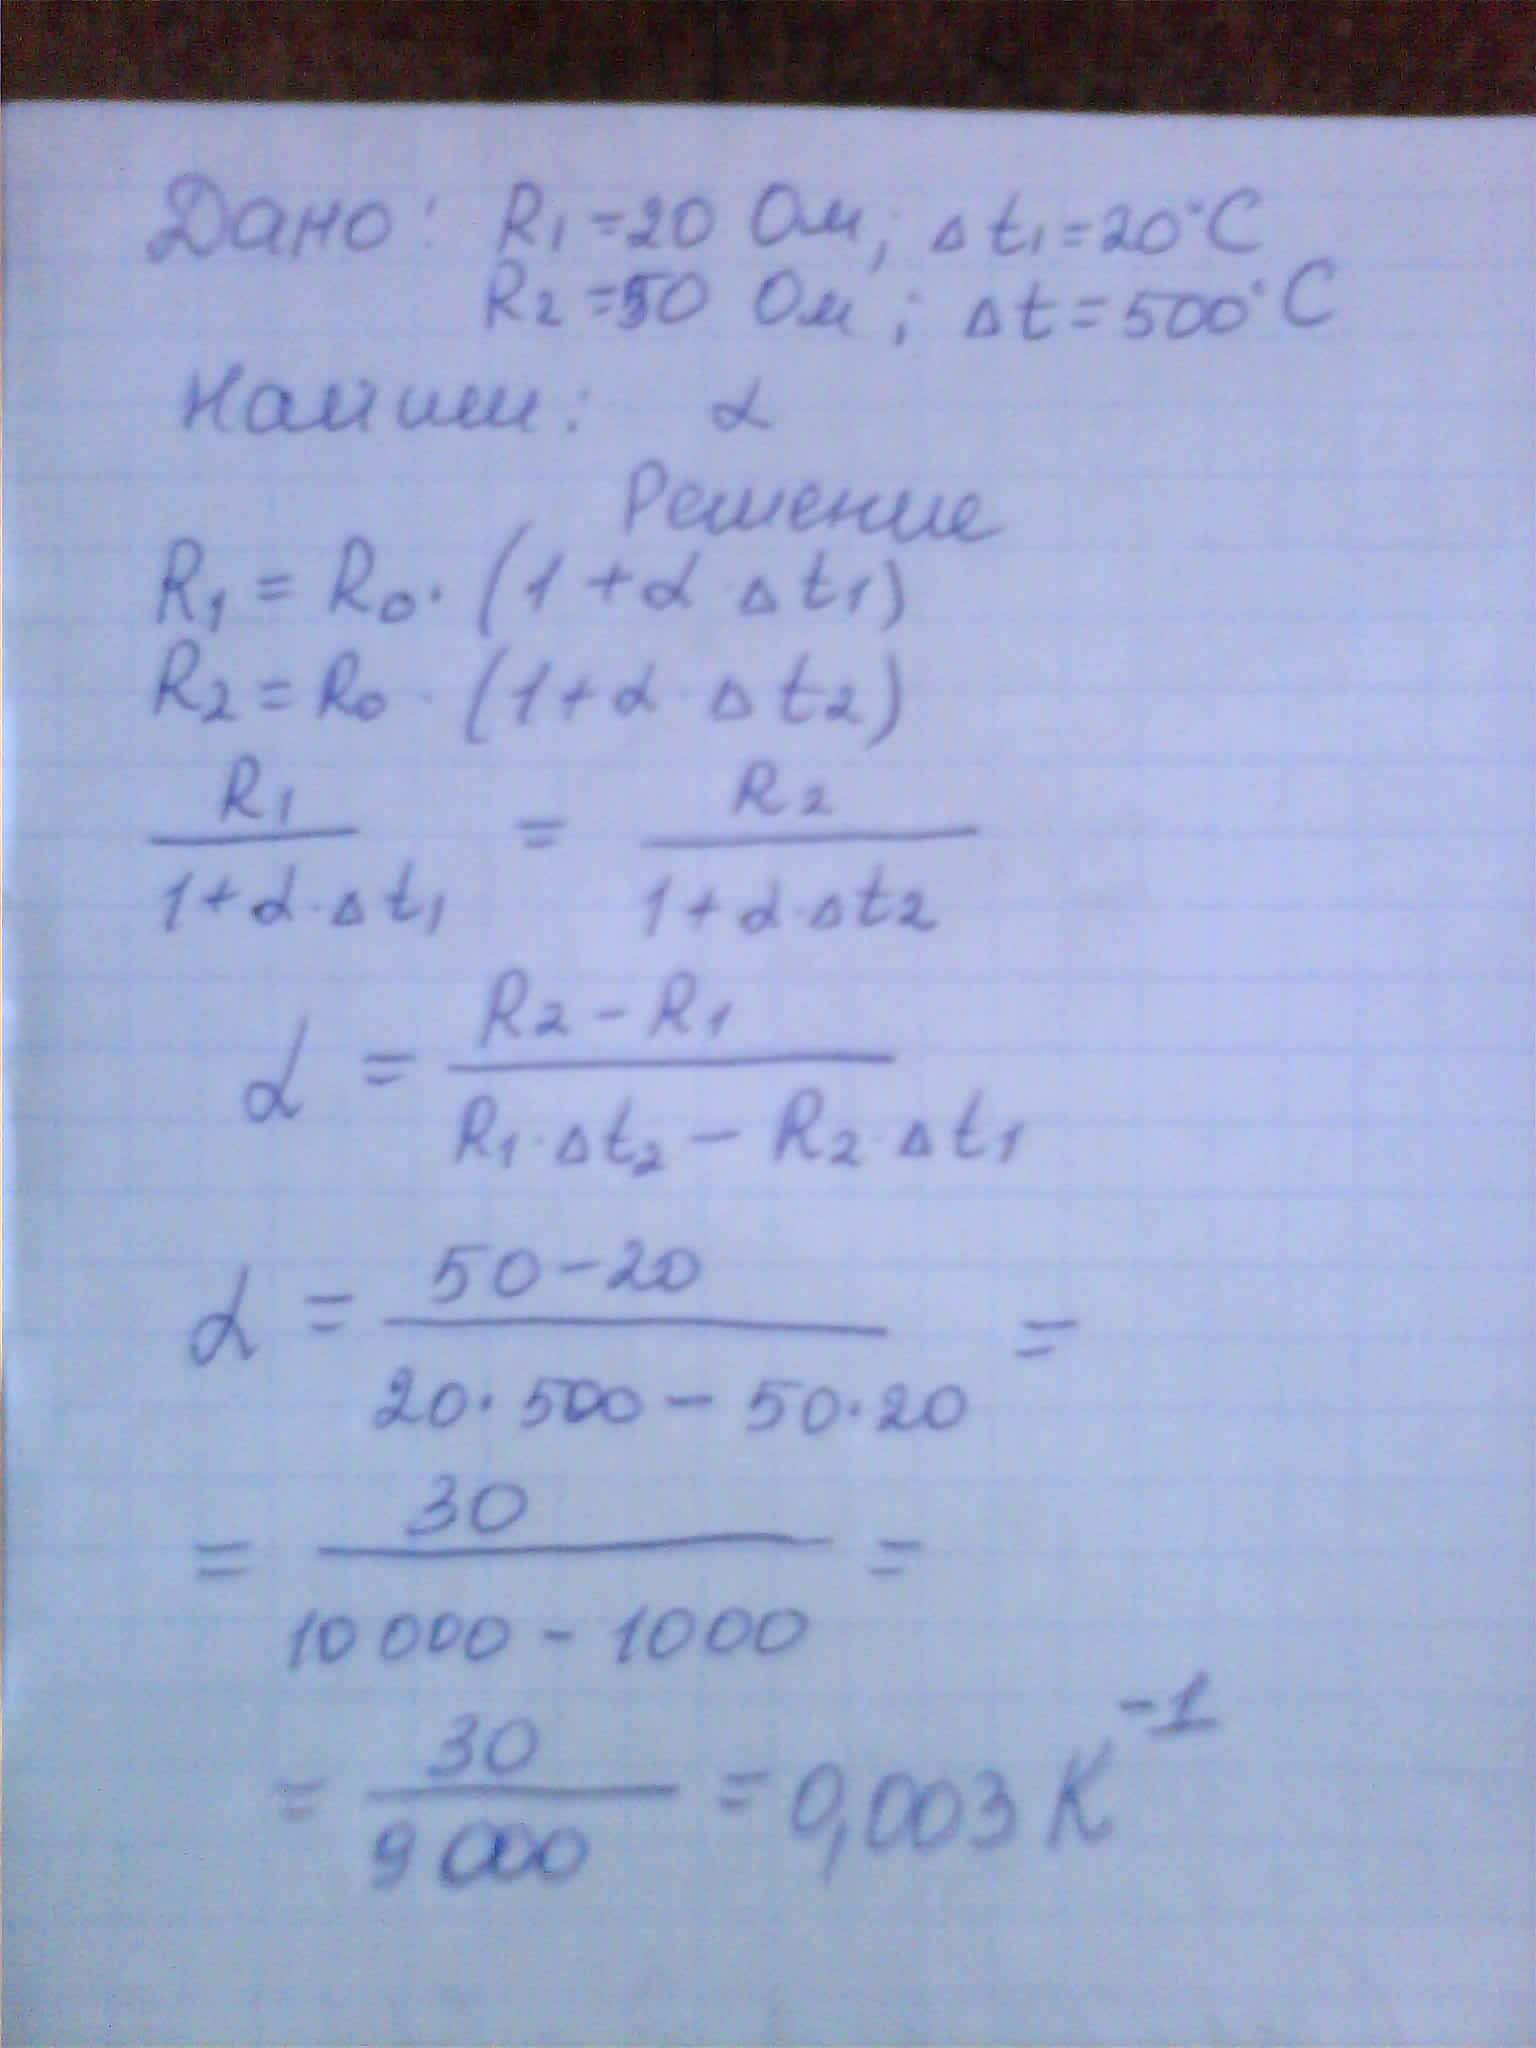 Дано: R1 = 20 Ом; Δt1 = 20°C
R2 = 50 Ом; Δt = 500°C
Найти: α
Решение
R1 = R0 · (1 + α Δt1)
R2 = R0 · (1 + α · Δt2)
R1 / (1 + α · Δt1) = R2 / (1 + α · Δt2)
α = (R2 − R1) / (R1 · Δt2 − R2 · Δt1)
α = (50 − 20) / (20 · 500 − 50 · 20) =
= 30 / (10 000 − 1000) =
= 30 / 9 000 = 0,003 K⁻¹